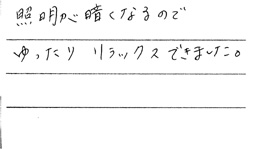 照明が暗くなるので
ゆったり リラックスできました。